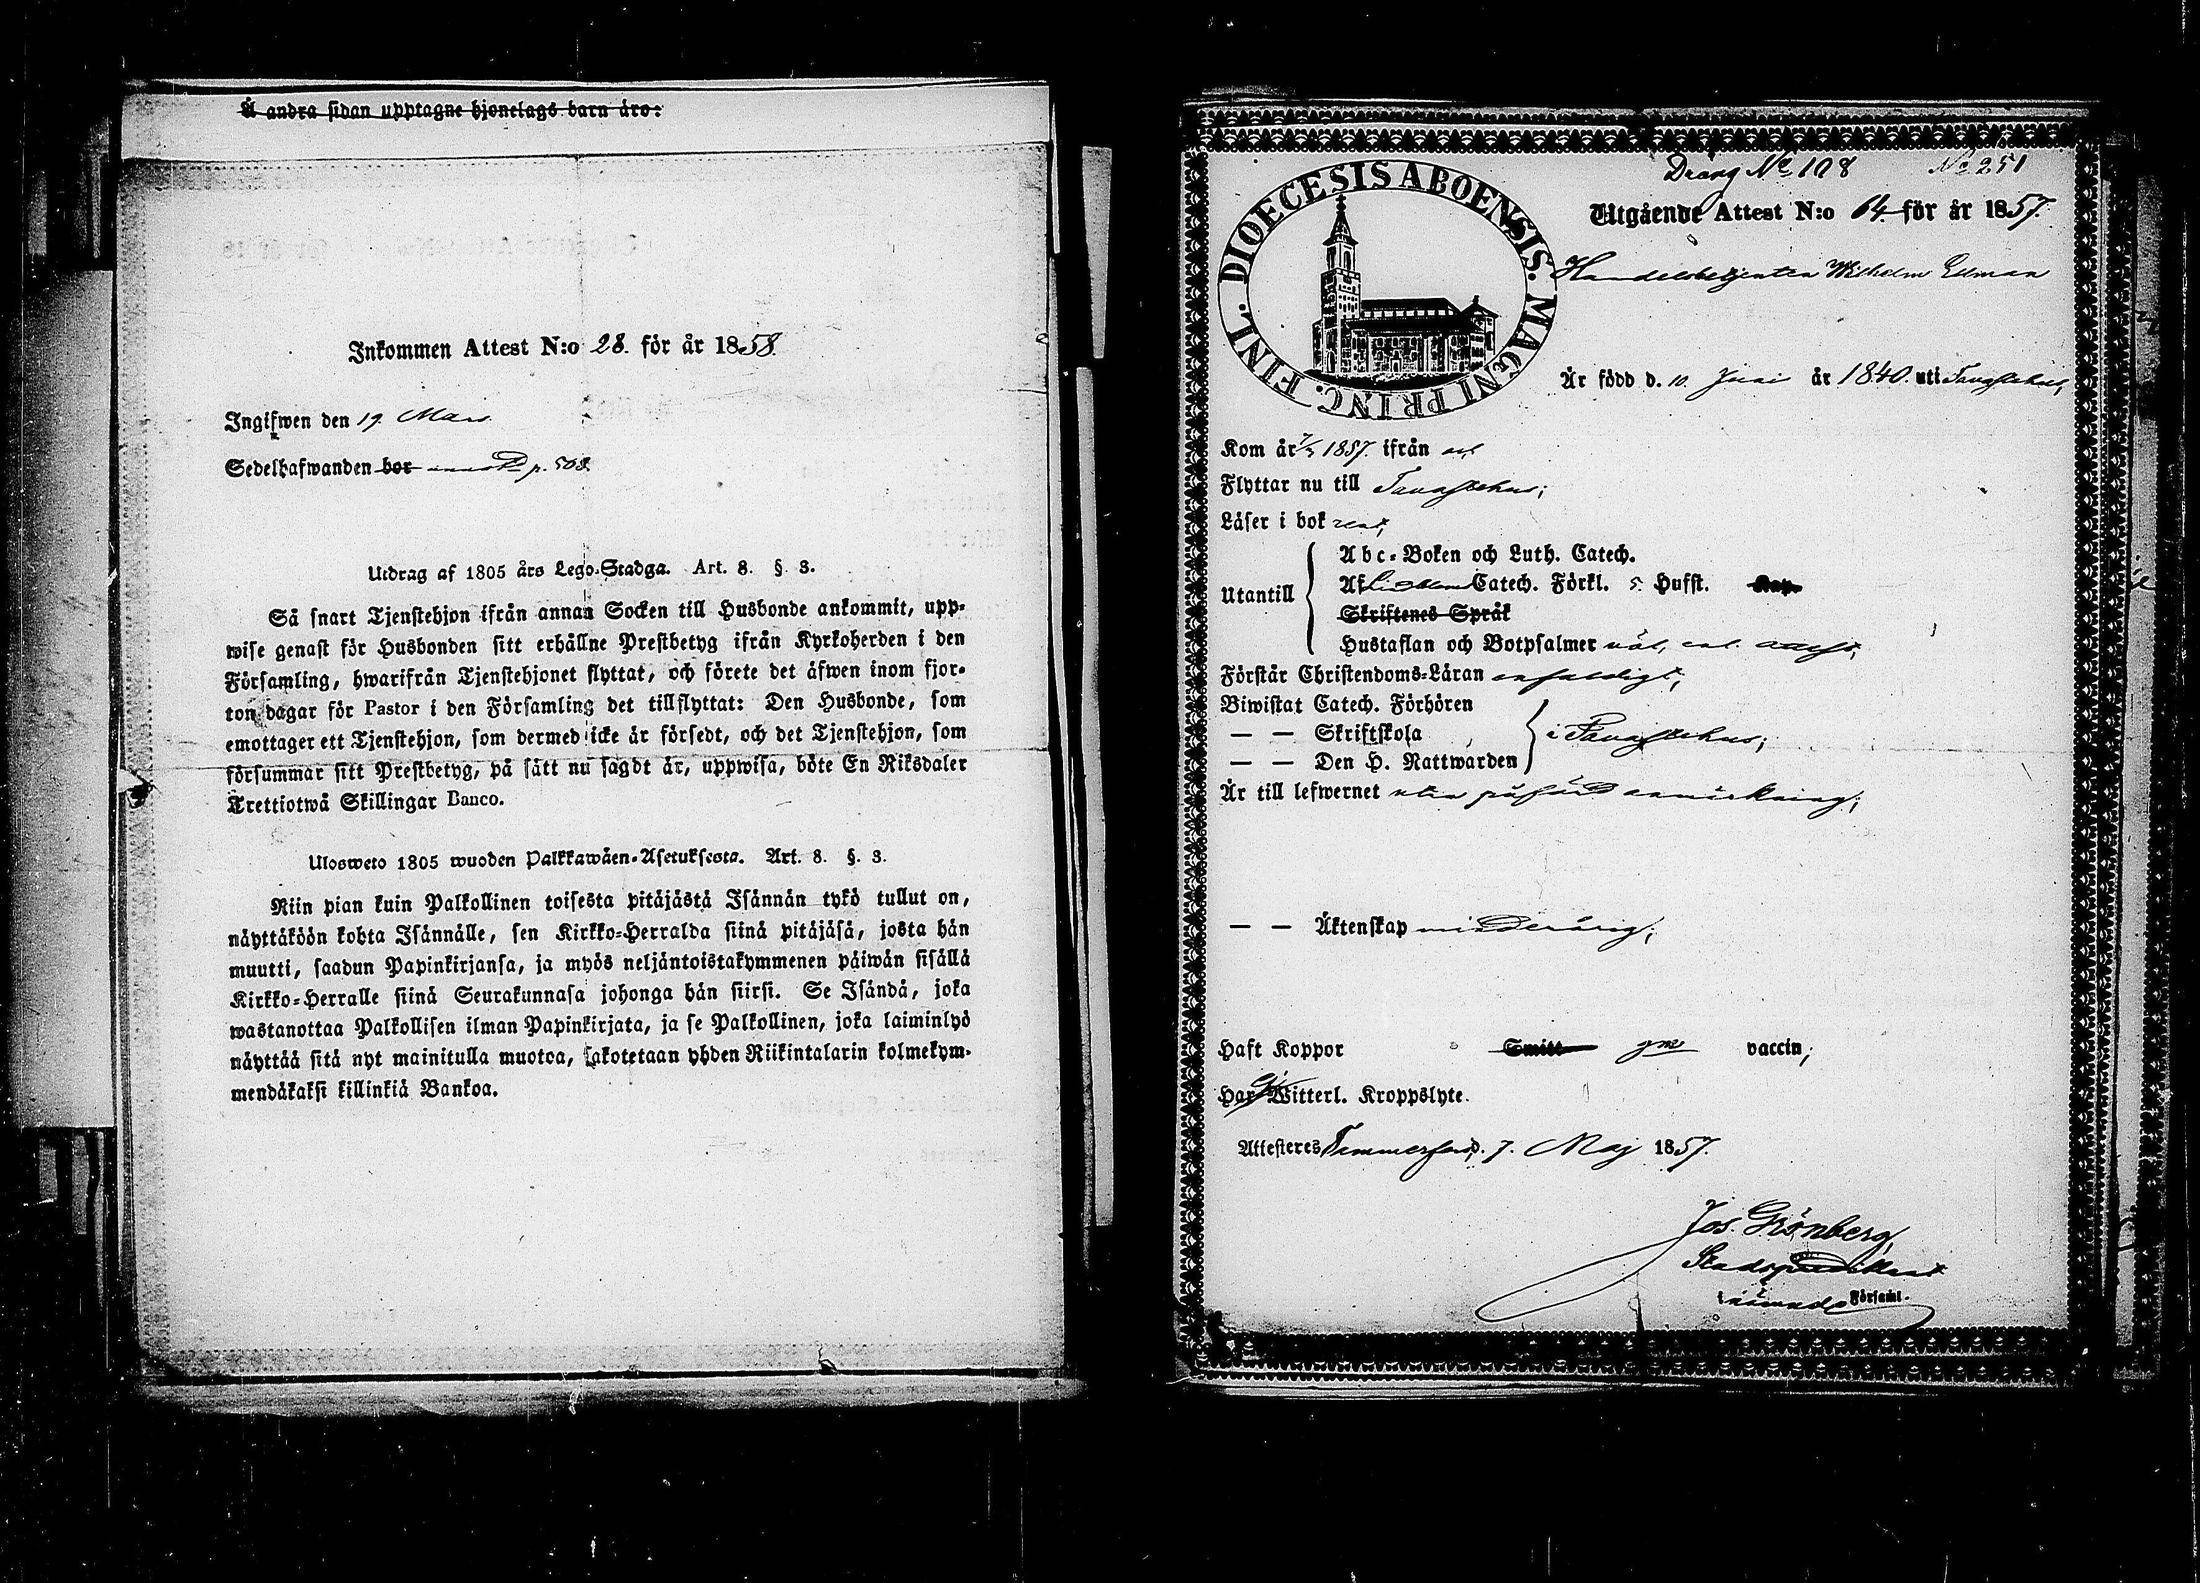 Å andra sidan upptagne hjonelags barn äro:
Inkommen Attest N:o 28. för år 1858.
Ingifwen den 19. Mars
Sedelhafwanden bor p. 508.
Utdrag af 1805 års Lego-Stadga. Art. 8. §. 3.
Så snart Tjenstehjon ifrån annan Socken till Husbonde ankommit, upp-
wise genast för Husbonden sitt erhållne Prestbetyg ifrån Kyrkoherden i den
Församling, hwarifrån Tjenstehjonet flyttat, och förete det äfwen inom fjor-
ton dagar för Pastor i den Församling det tillflyttat: Den Husbonde, som
emottager ett Tjenstehjon, som dermed icke är försedt, och det Tjenstehjon, som
försummar sitt Prestbetyg, på sätt nu sagdt är, uppwisa, böte En Riksdaler
Trettiotwå Skillingar Banco.
Ulosweto 1805 wuoden Palkkawäen-Asetuksesta. Art. 8. §. 3.
Niin pian kuin Palkollinen toisesta pitäjästä Isännän tykö tullut on,
näyttäköön kohta Isännälle, sen Kirkko-Herralda siinä pitäjäsä, josta hän
muutti, saadun Papinkirjansa, ja myös neljäntoistakymmenen päiwän sisällä
Kirkko-Herralle siinä Seurakunnasa johonga hän siirsi. Se Isändä, joka
wastanottaa Palkollisen ilman Papinkirjata, ja se Palkollinen, joka laiminlyö
näyttää sitä nyt mainitulla muotoa, sakotetaan yhden Riikintalarin kolmekym-
mendäkaksi killinkiä Bankoa.
Dräng No 108 No 251
DIOECESIS ABOENSIS. MAGNI PRINC. FINL.
Utgående Attest N:o 64. för år 1857.
Handelsbetjenten Wilhelm Ellman
Är född d. 10. Juni år 1840. uti Tavastehus,
Kom år 7/5 1857. ifrån
Flyttar nu till Tavastehus;
Läser i bok rent,
Utantill
Abc-Boken och Luth. Catech.
Af Catech. Förkl. 5. Hufst. Kap.
Skriftenes Språk
Hustaflan och Botpsalmer
Förstår Christendoms-Läran enfaldigt,
Biwistat Catech. Förhören
— — Skriftskola i Tavastehus;
— — Den H. Nattwarden
Är till lefwernet utan påförd anmärkning;
— — Äktenskap minderårig;
Haft Koppor Smitt gm vaccin;
Har Ej Witterl. Kroppslyte.
Attesteres Tammerfors, d. 7. Maj 1857.
Jos. Grönberg,
Stadspredikant
i nämnde Församl.